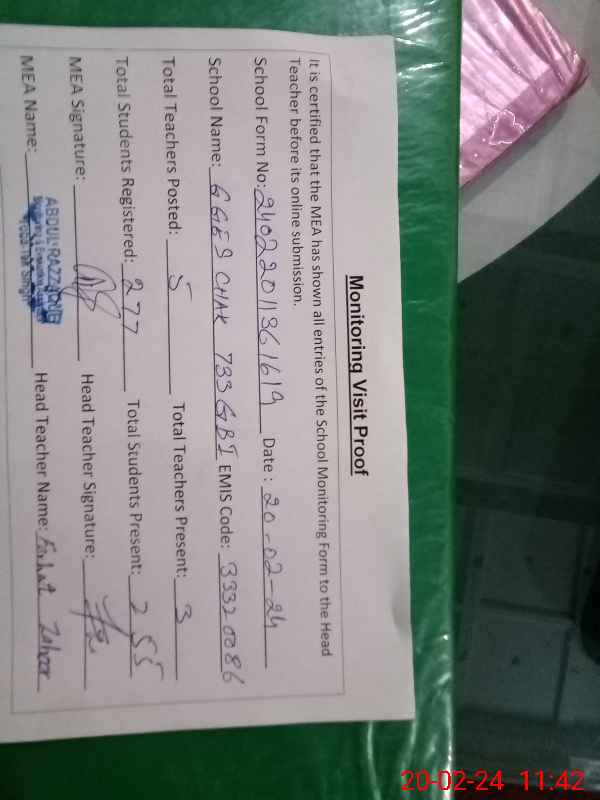 Monitoring Visit Proof
It is certified that the MEA has shown all entries of the School Monitoring Form to the Head
Teacher before its online submission.
School Form No: 24022011361619 Date: 20-02-24
School Name: GGES CHAK 733 GB I EMIS Code: 33320086
Total Teachers Posted: 5 Total Teachers Present: 3
Total Students Registered: 277 Total Students Present: 255
MEA Signature: Head Teacher Signature:
MEA Name: ABDUL RAZZAQ Head Teacher Name: Farhat Zaheer
20-02-24 11:42